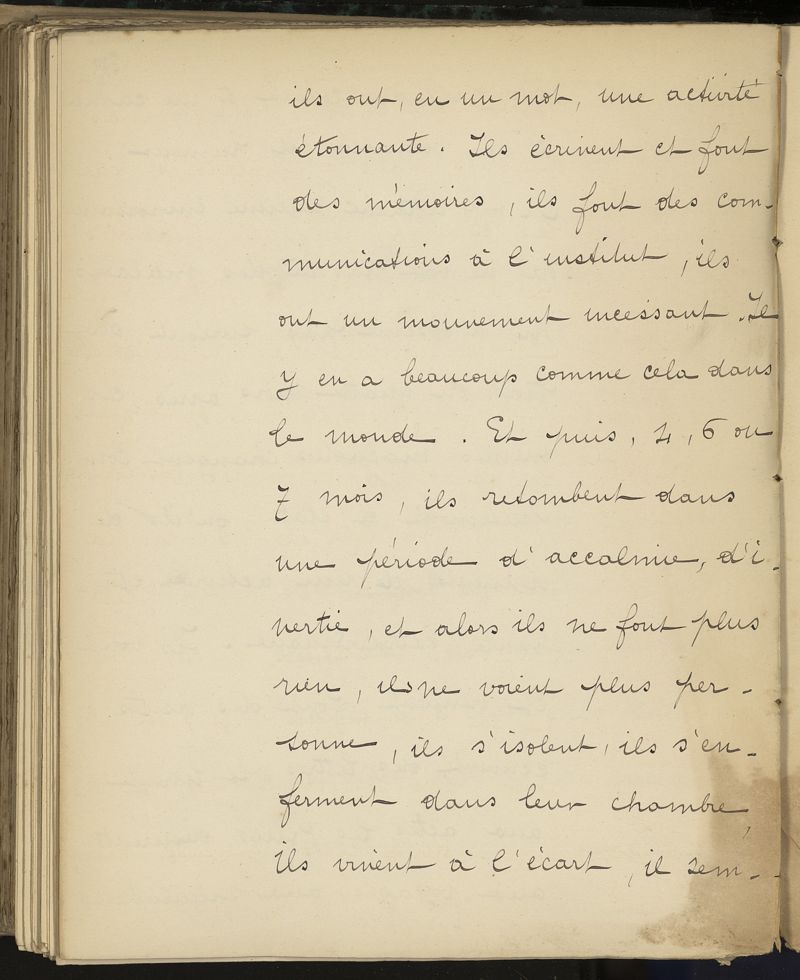 ils ont, en un mot, une activité
étonnante. Ils écrivent et font
des mémoires, ils font des com-
munications à l'institut, ils
ont un mouvement incessant. Il
y en a beaucoup comme cela dans
le monde. Et puis, 4, 6 ou
7 mois, ils retombent dans
une période d'accalmie, d'i-
nertie, et alors ils ne font plus
rien, ils ne voient plus per-
sonne, ils s'isolent, ils s'en-
ferment dans leur chambre,
ils vivent à l'écart, il sem-